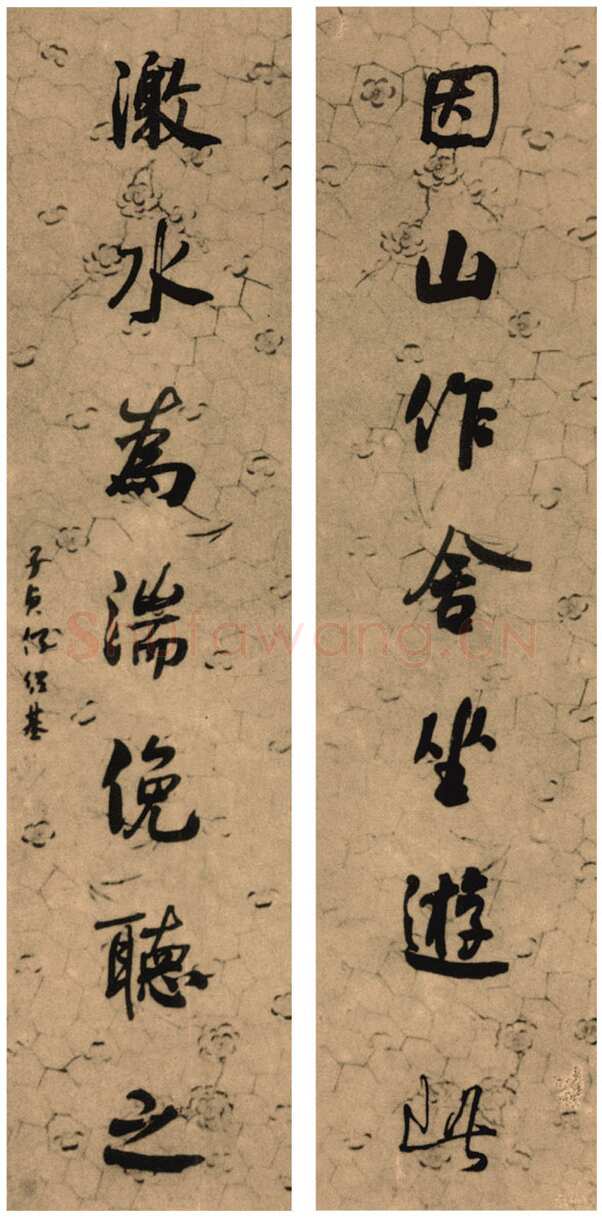 因山作舍坐遊此
激水為湍俛聽之
子貞何紹基
Shufawang.CN